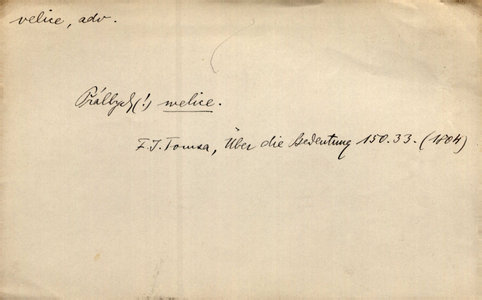 velice, adv.
Přálbych(!) welice.
F.J.Tomsa, Über die Bedeutung 150.33. (1804)